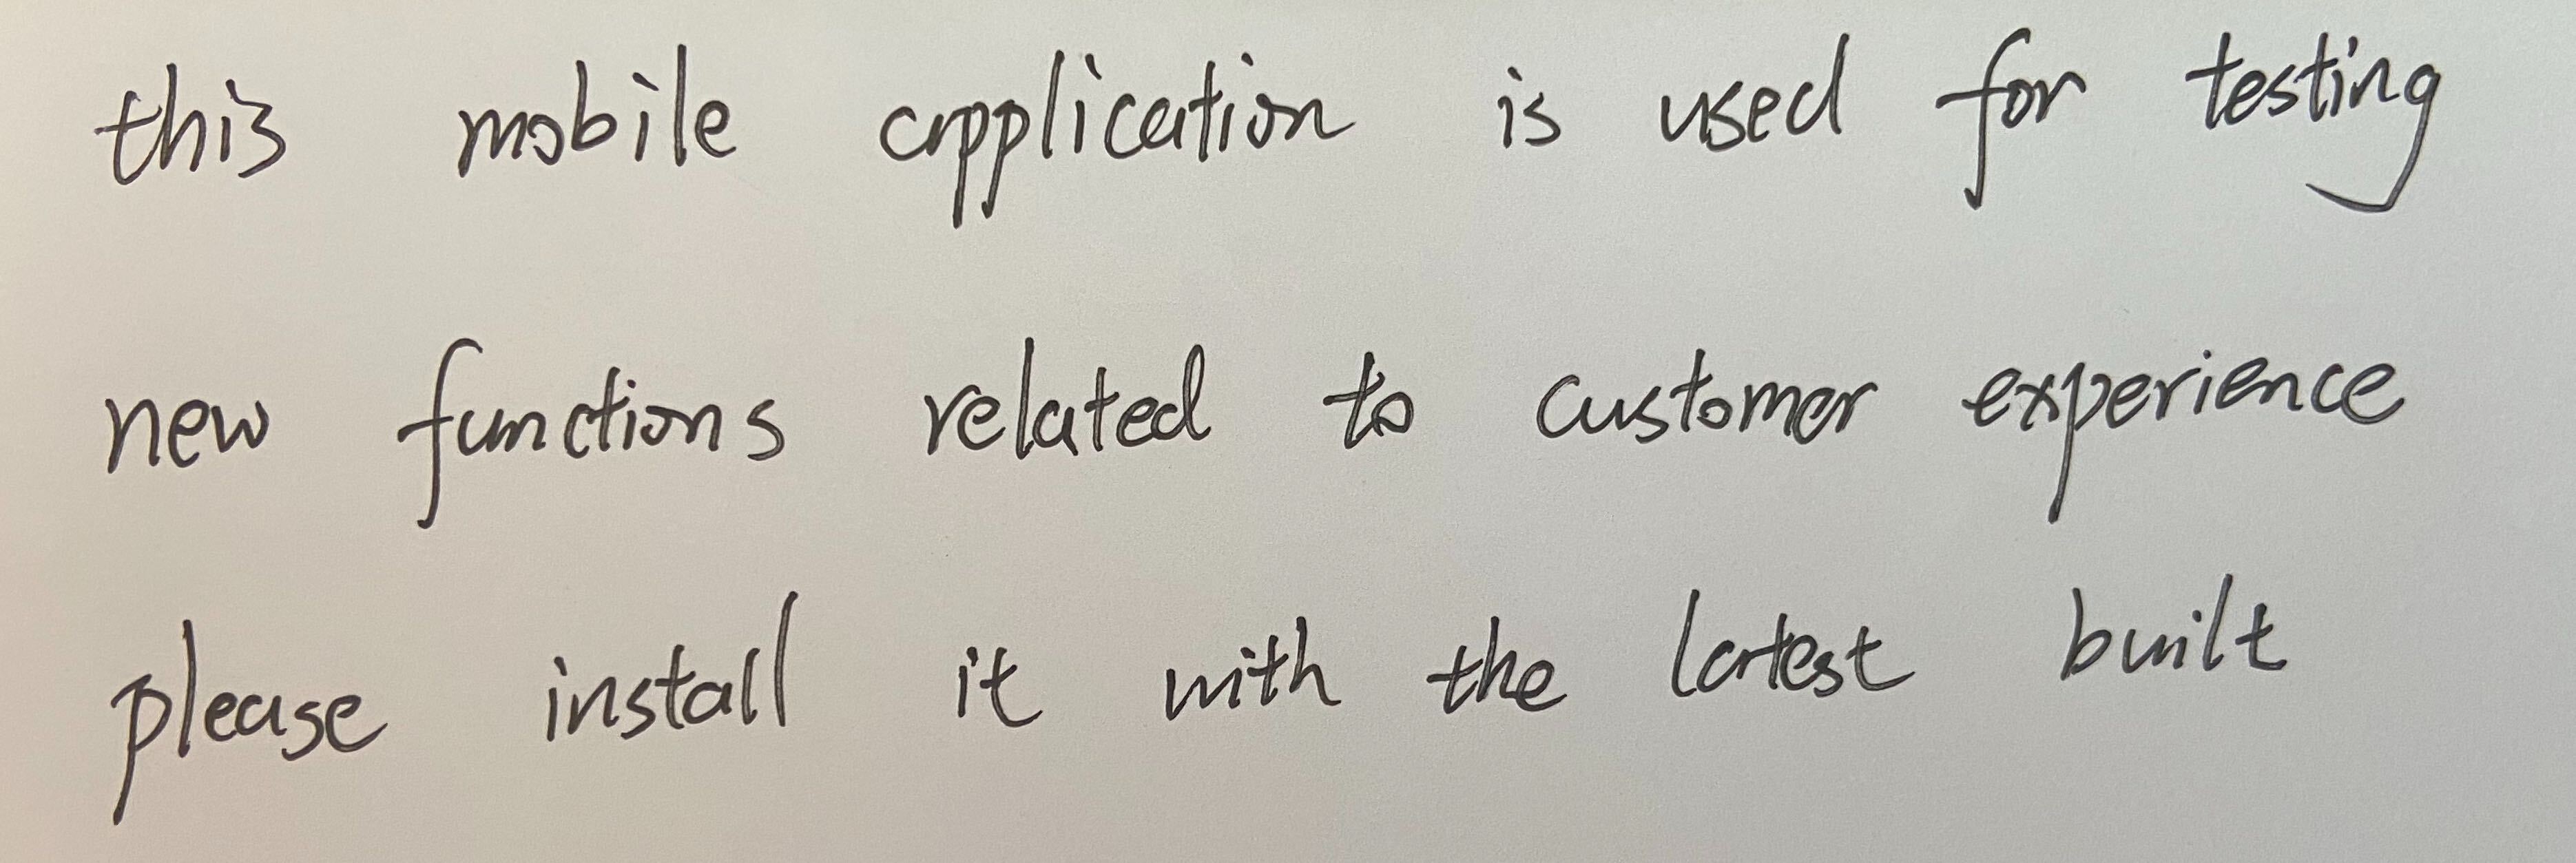 this mobile application is used for testing
new functions related to customer experience
please install it with the latest built